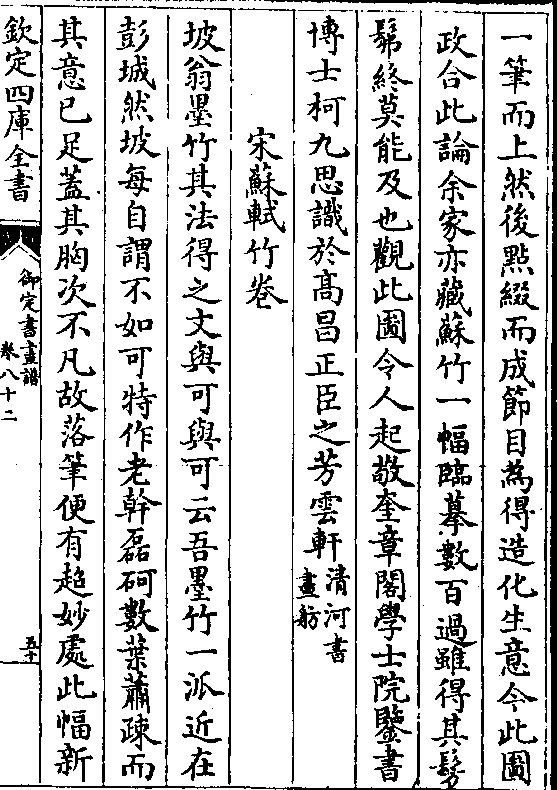 一筆而上然後點綴而成節目為得造化生意今此圖
政合此論余家亦藏蘇竹一幅臨摹數百過雖得其髣
髴終莫能及也觀此圖令人起敬奎章閣學士院鑒書
博士柯九思識於髙昌正臣之芳雲軒清河書
畫舫
宋蘇軾竹卷
坡翁墨竹其法得之文與可與可云吾墨竹一派近在
彭城然坡每自謂不如可特作老幹磊砢數葉蕭疎而
其意已足蓋其胸次不凡故落筆便有超妙處此幅新
欽定四庫全書
御定書畫譜
卷八十二
五十